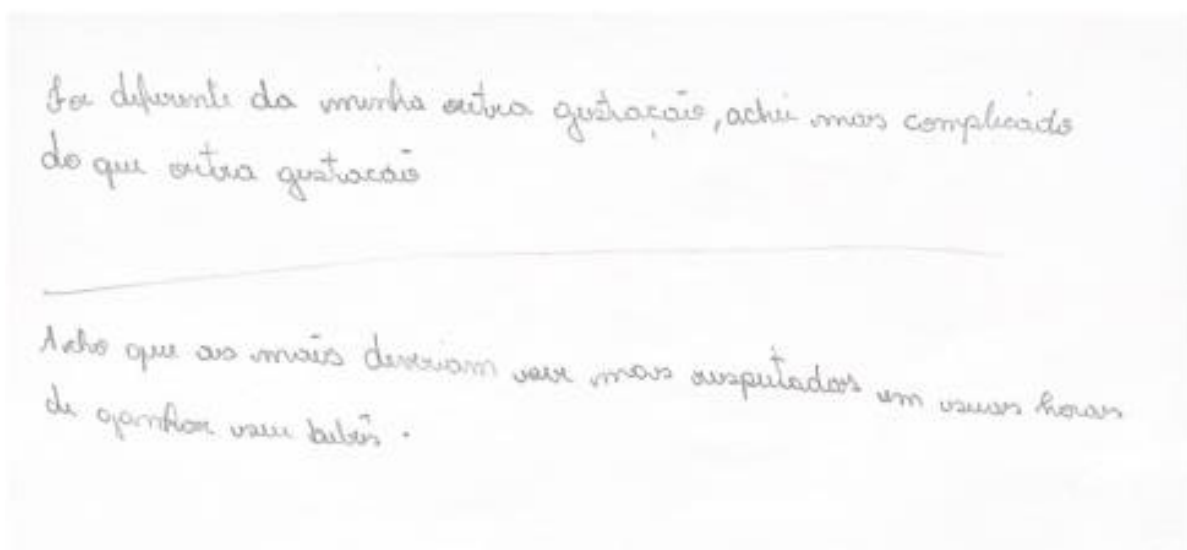 Foi diferente da minha outra gestração, achei mais complicado
do que outra gestacão
Acho que as mães deveriam ser mais respeitados em suas horas
de ganhar seu bebês.